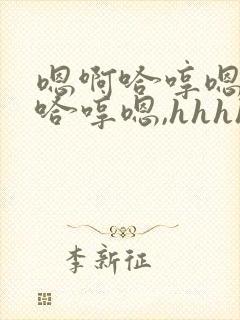 嗯啊哈哼嗯
哈哼嗯,hhhh
李新征